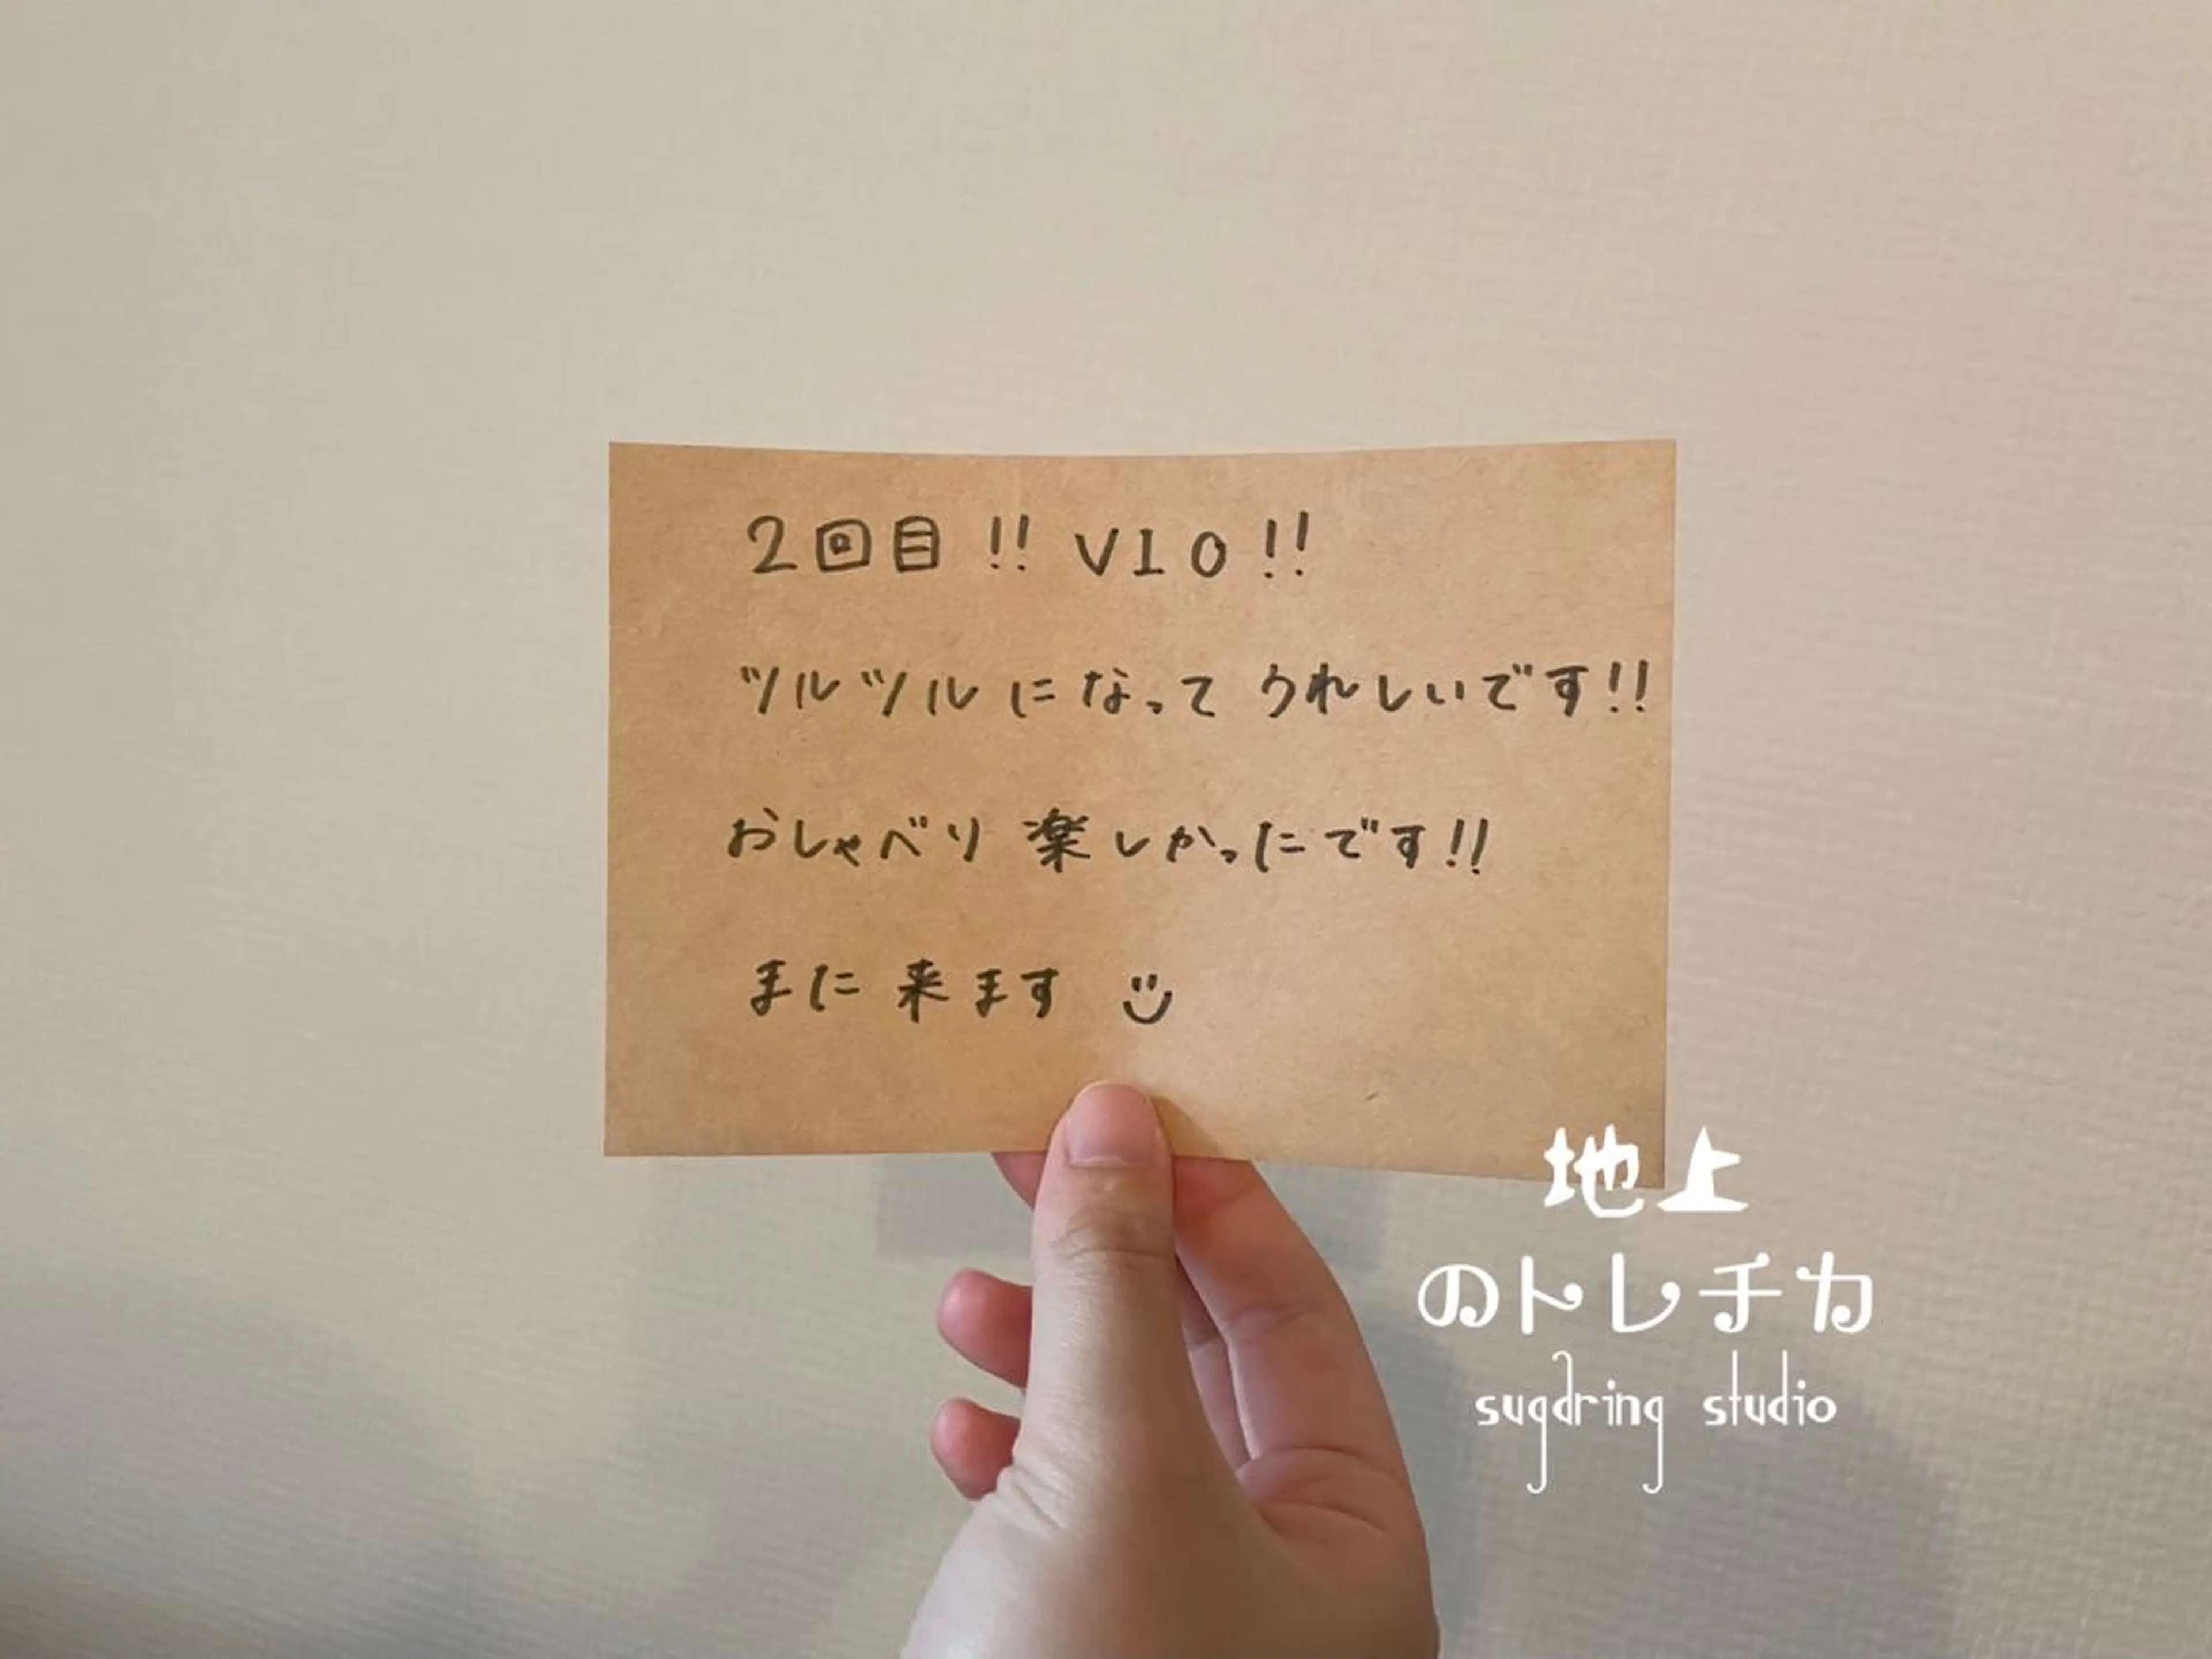 2回目!! VIO!!
ツルツルになって うれしいです!!
おしゃべり 楽しかったです!!
また 来ます
地上
のトレチカ
sugaring studio